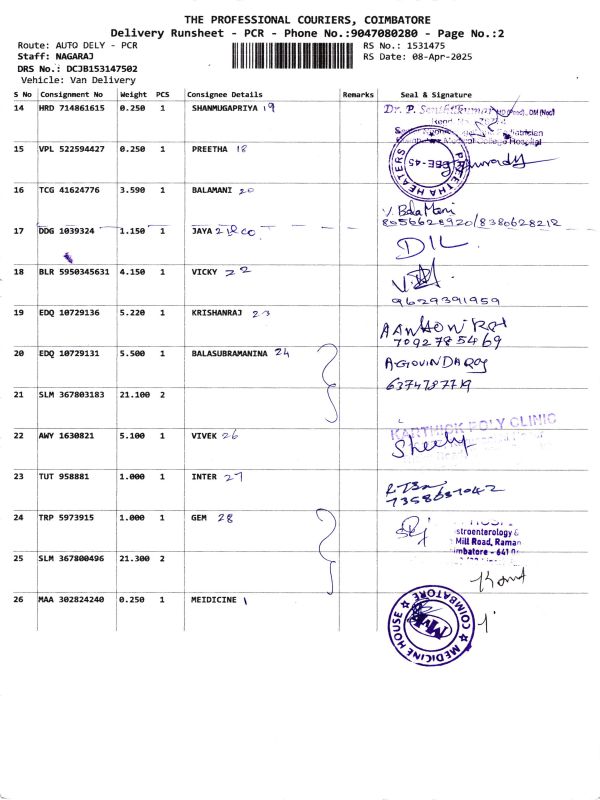 THE PROFESSIONAL COURIERS, COIMBATORE
Delivery Runsheet - PCR - Phone No.:9047080280 - Page No.:2
Route: AUTO DELY - PCR
RS No.: 1531475
Staff: NAGARAJ
RS Date: 08-Apr-2025
DRS No.: DCJB153147502
Vehicle: Van Delivery
S No Consignment No Weight PCS Consignee Details Remarks Seal & Signature
14 HRD 714861615 0.250 1 SHANMUGAPRIYA 19
Dr. P. Senthilkumar
Medical College Hospital
15 VPL 522594427 0.250 1 PREETHA 18
PREETHA HEATERS
CBE-45
16 TCG 41624776 3.590 1 BALAMANI 20
V. BalaMani
8056628920/8380628212
17 DDG 1039324 1.150 1 JAYA 21
DIL
18 BLR 5950345631 4.150 1 VICKY 22
9629391959
19 EDQ 10729136 5.220 1 KRISHANRAJ 23
7092785469
20 EDQ 10729131 5.500 1 BALASUBRAMANINA 24
A GOVINDARAJ
6374787719
21 SLM 367803183 21.100 2
KARTHICK POLY CLINIC
22 AWY 1630821 5.100 1 VIVEK 26
Sheely
23 TUT 958881 1.000 1 INTER 27
7358637042
24 TRP 5973915 1.000 1 GEM 28
stroenterology &
Mill Road, Raman
imbatore - 641
25 SLM 367800496 21.300 2
26 MAA 302824240 0.250 1 MEIDICINE 1
MEDICINE HOUSE
COIMBATORE